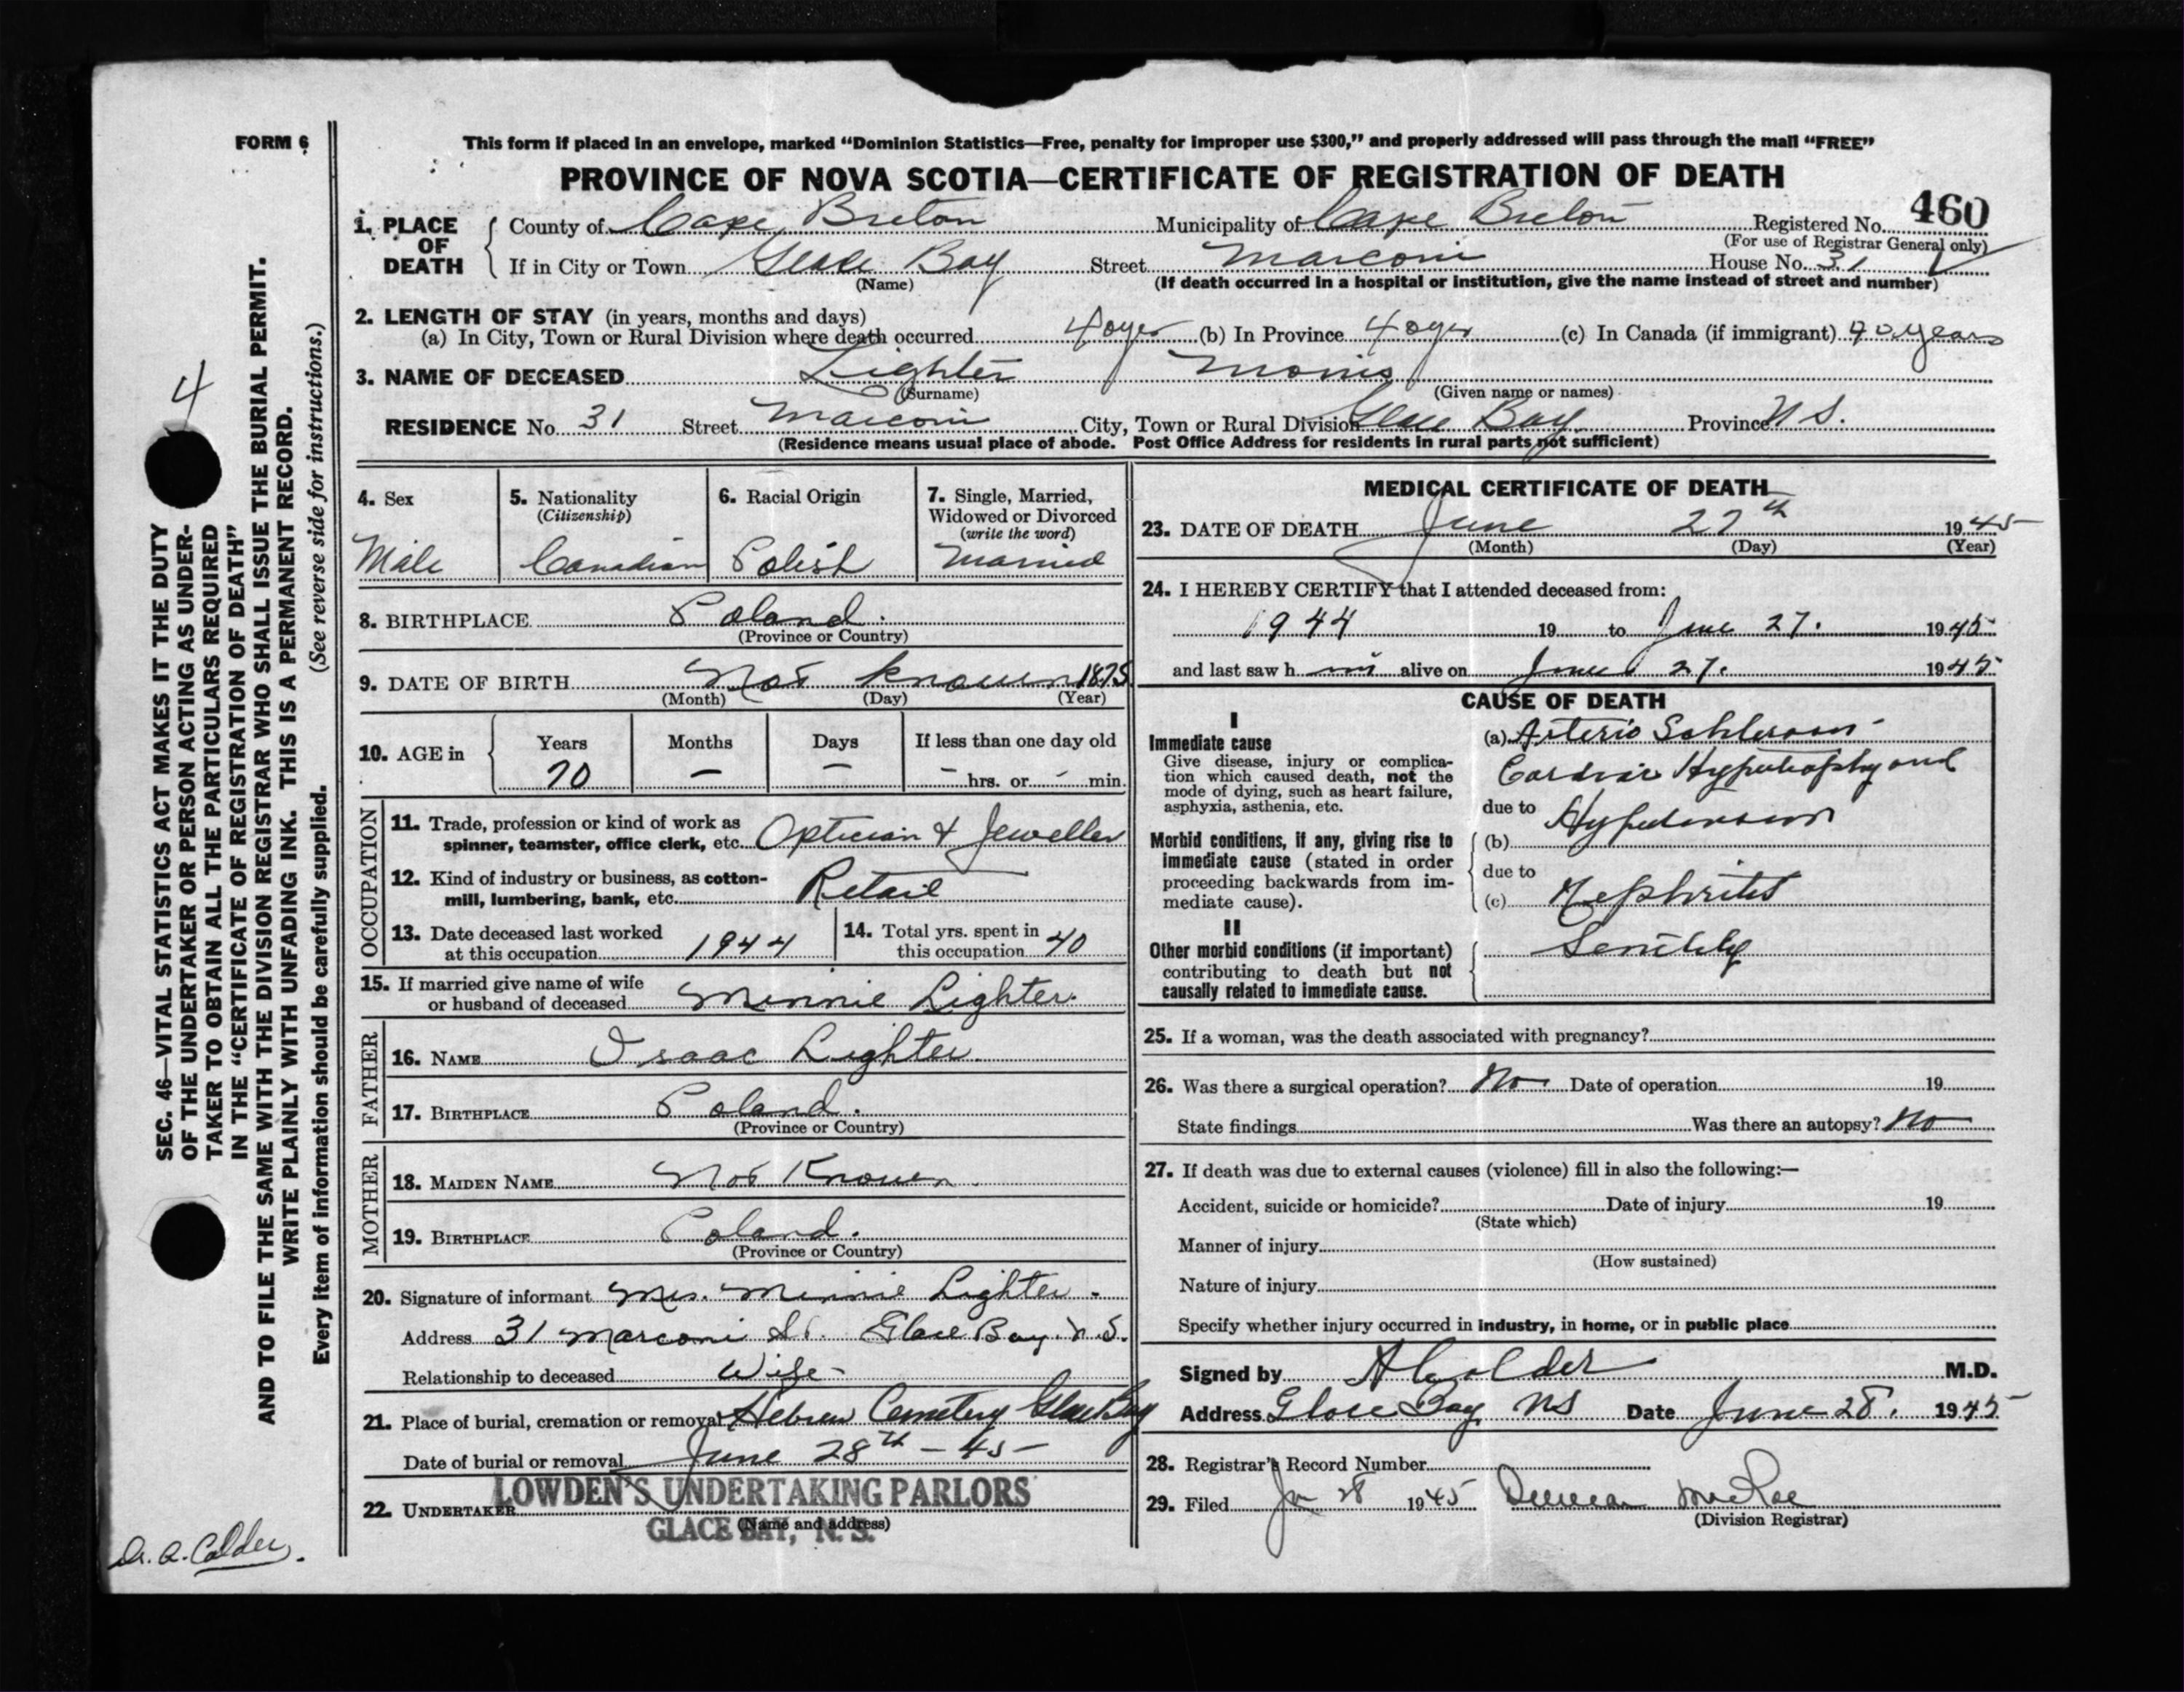 FORM 6
This form if placed in an envelope, marked “Dominion Statistics—Free, penalty for improper use $300,” and properly addressed will pass through the mail “FREE”
PROVINCE OF NOVA SCOTIA—CERTIFICATE OF REGISTRATION OF DEATH
460
1. PLACE OF DEATH
County of Cape Breton Municipality of Cape Breton Registered No.
(For use of Registrar General only)
If in City or Town Glace Bay Street Marconi House No. 31
(Name) (If death occurred in a hospital or institution, give the name instead of street and number)
2. LENGTH OF STAY (in years, months and days)
(a) In City, Town or Rural Division where death occurred 40 yrs (b) In Province 40 yrs (c) In Canada (if immigrant) 40 years
3. NAME OF DECEASED Lighter Morris
(Surname) (Given name or names)
RESIDENCE No. 31 Street Marconi City, Town or Rural Division Glace Bay Province N S.
(Residence means usual place of abode. Post Office Address for residents in rural parts not sufficient)
4. Sex
Male
5. Nationality
(Citizenship)
Canadian
6. Racial Origin
Polish
7. Single, Married,
Widowed or Divorced
(write the word)
Married
8. BIRTHPLACE Poland.
(Province or Country)
9. DATE OF BIRTH Not known 1875
(Month) (Day) (Year)
10. AGE in
Years Months Days If less than one day old
70 — — - hrs. or - min.
OCCUPATION
11. Trade, profession or kind of work as
spinner, teamster, office clerk, etc. Optician & Jeweller
12. Kind of industry or business, as cotton-
mill, lumbering, bank, etc. Retail
13. Date deceased last worked
at this occupation 1944
14. Total yrs. spent in
this occupation 40
15. If married give name of wife
or husband of deceased Minnie Lighter.
FATHER
16. NAME Isaac Lighter.
17. BIRTHPLACE Poland.
(Province or Country)
MOTHER
18. MAIDEN NAME Not Known.
19. BIRTHPLACE Poland.
(Province or Country)
20. Signature of informant Mrs. Minnie Lighter.
Address 31 Marconi St. Glace Bay. N. S.
Relationship to deceased Wife
21. Place of burial, cremation or removal Hebrew Cemetery Glace Bay
Date of burial or removal June 28th - 45 -
LOWDEN'S UNDERTAKING PARLORS
22. UNDERTAKER
(Name and address)
GLACE BAY, N. S.
MEDICAL CERTIFICATE OF DEATH
23. DATE OF DEATH June 27th 1945
(Month) (Day) (Year)
24. I HEREBY CERTIFY that I attended deceased from:
1944 19 to June 27. 1945
and last saw h im alive on June 27. 1945
CAUSE OF DEATH
I
Immediate cause
Give disease, injury or complica-
tion which caused death, not the
mode of dying, such as heart failure,
asphyxia, asthenia, etc.
(a) Arterio Schlerosis -
Cardiac Hypertrophy and
due to Hypertension
Morbid conditions, if any, giving rise to
immediate cause (stated in order
proceeding backwards from im-
mediate cause).
(b)
due to
(c) Nephritis
II
Other morbid conditions (if important)
contributing to death but not
causally related to immediate cause.
Senility
25. If a woman, was the death associated with pregnancy?
26. Was there a surgical operation? No Date of operation 19
State findings Was there an autopsy? No
27. If death was due to external causes (violence) fill in also the following:—
Accident, suicide or homicide? Date of injury 19
(State which)
Manner of injury
(How sustained)
Nature of injury
Specify whether injury occurred in industry, in home, or in public place
Signed by A Calder M.D.
Address Glace Bay NS Date June 28. 1945
28. Registrar's Record Number
29. Filed Jn 28 1945 Duncan McRae
(Division Registrar)
4
SEC. 46—VITAL STATISTICS ACT MAKES IT THE DUTY
OF THE UNDERTAKER OR PERSON ACTING AS UNDER-
TAKER TO OBTAIN ALL THE PARTICULARS REQUIRED
IN THE “CERTIFICATE OF REGISTRATION OF DEATH”
AND TO FILE THE SAME WITH THE DIVISION REGISTRAR WHO SHALL ISSUE THE BURIAL PERMIT.
WRITE PLAINLY WITH UNFADING INK. THIS IS A PERMANENT RECORD.
Every item of information should be carefully supplied. (See reverse side for instructions.)
Dr. A. Calder.